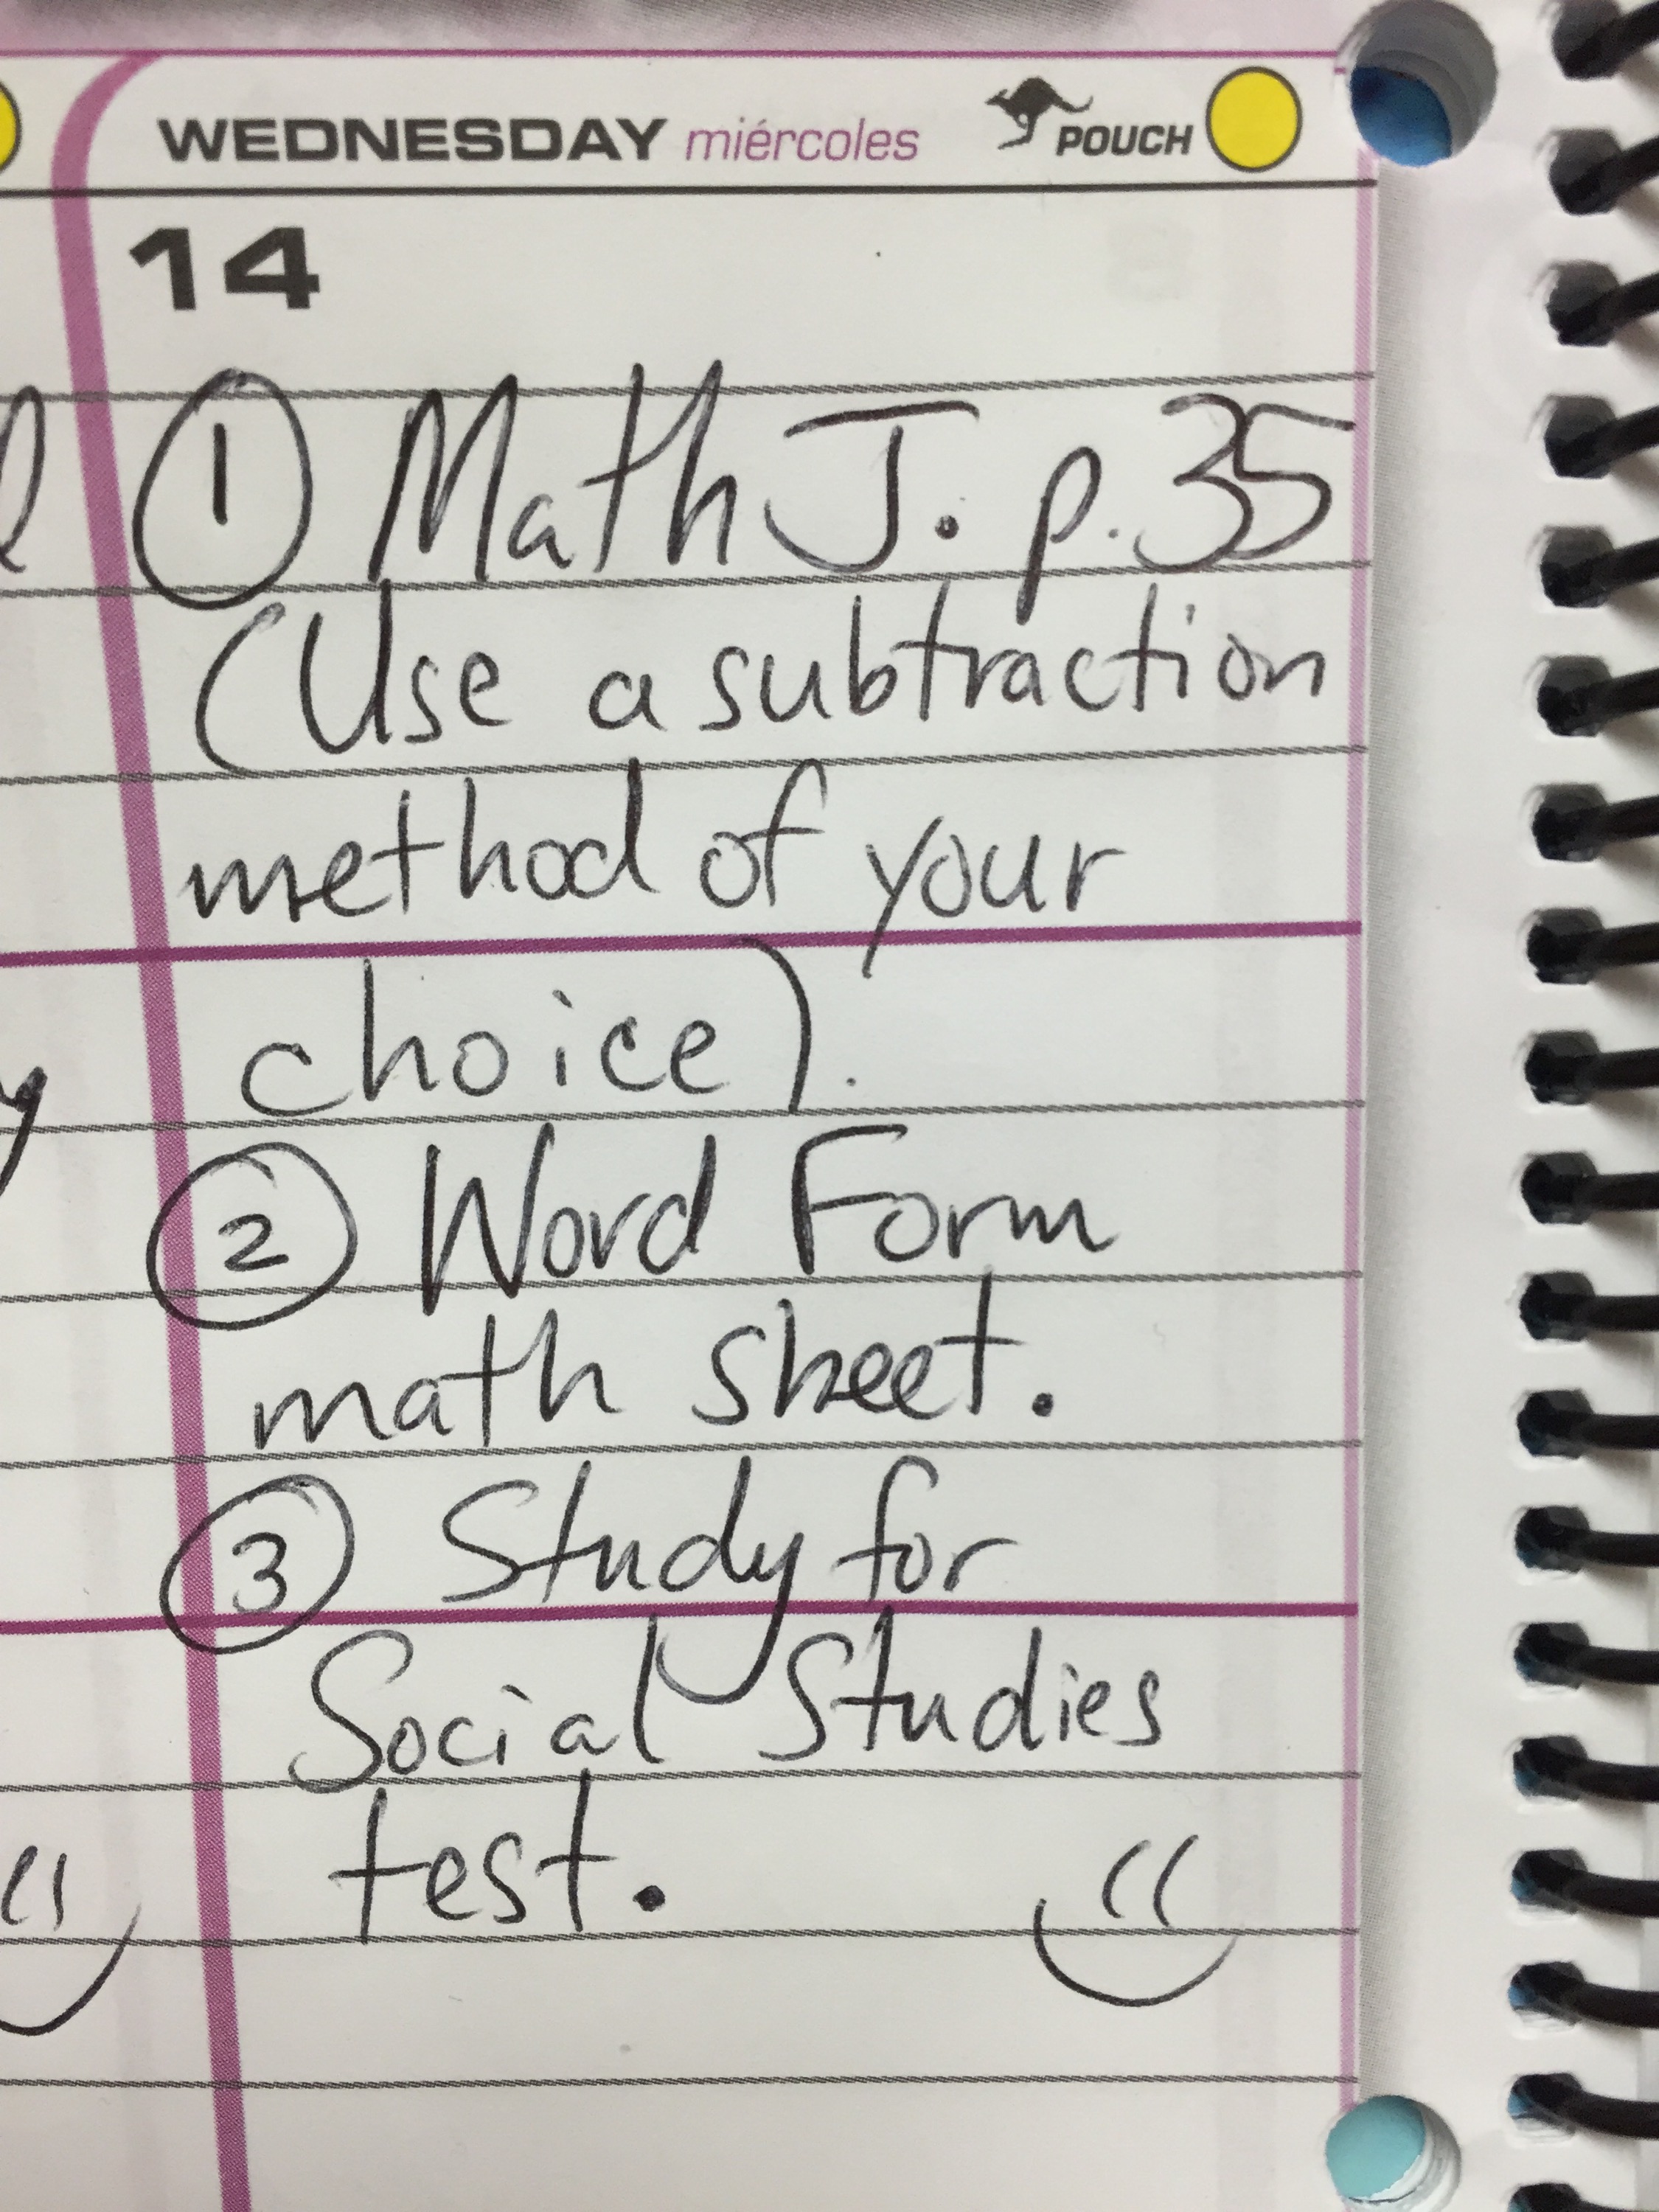 WEDNESDAY miércoles POUCH
14
1 Math J. p. 35
(Use a subtraction
method of your
choice).
2 Word Form
math sheet.
3 Study for
Social Studies
test.